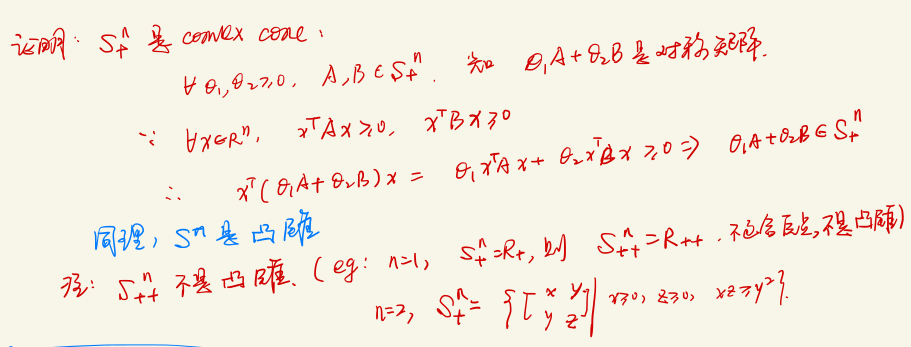 证明: S₊ⁿ 是 convex cone:
∀ θ₁,θ₂≥0, A,B∈S₊ⁿ. 知 θ₁A+θ₂B 是对称矩阵.
∵ ∀x∈Rⁿ, xᵀAx≥0, xᵀBx≥0
∴ xᵀ(θ₁A+θ₂B)x = θ₁xᵀAx+θ₂xᵀBx≥0 ⇒ θ₁A+θ₂B∈S₊ⁿ
同理, Sⁿ 是凸锥
注: S₊₊ⁿ 不是凸锥. (eg: n=1, S₊ⁿ=R₊, 则 S₊₊ⁿ=R₊₊. 不包含原点,不是凸锥)
n=2, S₊ⁿ= {[x y; y z] | x≥0, z≥0, xz≥y²}.